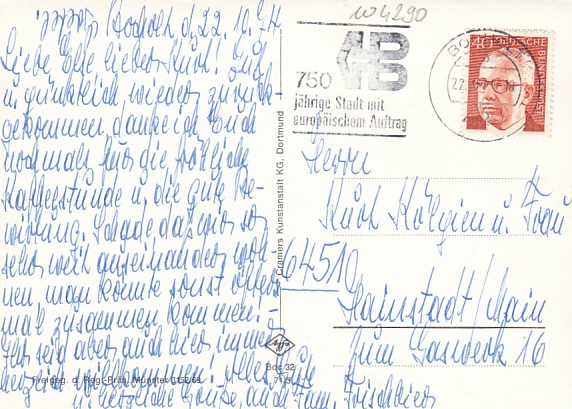 Bocholt, d. 22. 10. 71
Liebe Else lieber Kurt! Gut
u. pünktlich wieder zurück-
gekommen danke ich Euch
nochmals für die fröhliche
Kaffeestunde u. die gute Be-
wirtung. Schade daß wir so
sehr weit auseinander woh-
nen, man könnte sonst öfters
mal zusammen kommen.
Ihr seid aber auch hier immer
herzlich willkommen. Alles Gute
u. herzliche Grüße, auch Fam. Frischbier
1004290
750
jährige Stadt mit
europäischem Auftrag
BOCHOLT
40
DEUTSCHE BUNDESPOST
Herrn
Kurt Kölgien u. Frau
6451
Hainstadt/Main
Zum Gaswerk 16
Cramers Kunstanstalt KG, Dortmund
Agfa
Boc 32
Freigeg. d. Reg.-Präs. Münster 3152/69